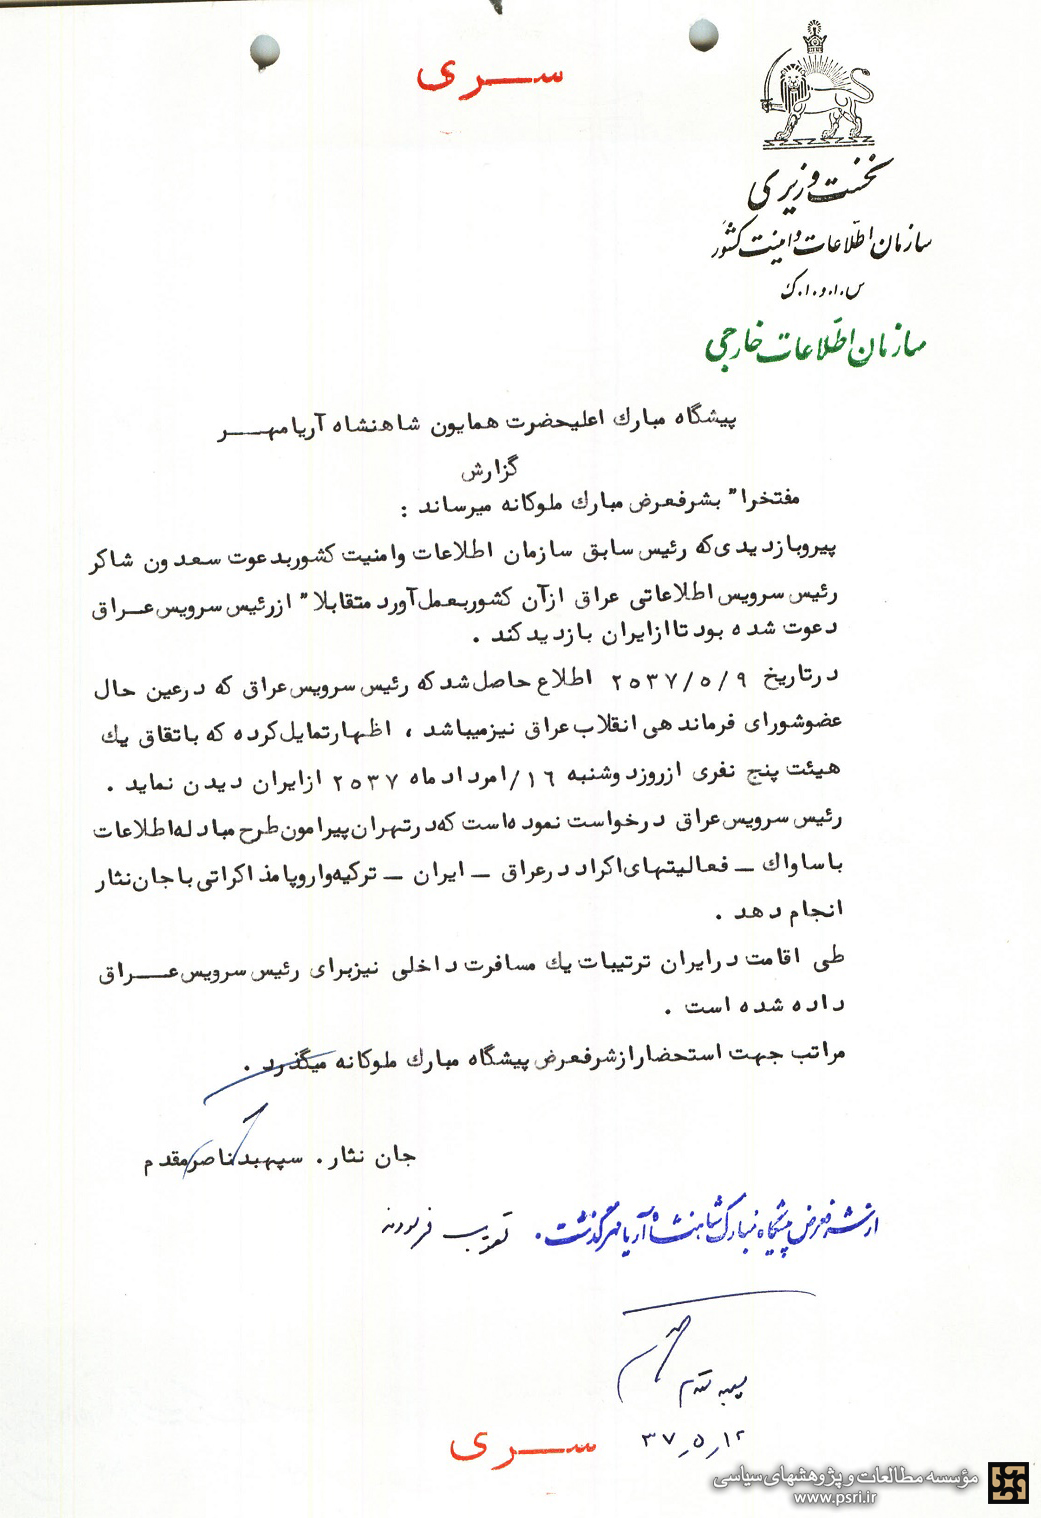 سـری
نخست وزیری
سازمان اطلاعات و امنیت کشور
س.ا.و.ا.ک
سازمان اطلاعات خارجی
پیشگاه مبارك اعلیحضرت همایون شاهنشاه آریامهـر
گزارش
مفتخرا" بشرفعرض مبارك ملوکانه میرساند :
پیروبازدیدی‌که رئیس سابق سازمان اطلاعات وامنیت کشوربدعوت سعدون شاکر
رئیس سرویس اطلاعاتی عراق ازآن کشوربعمل‌آورد متقابلا" ازرئیس سرویس عـراق
دعوت شده بود تاازایران بازدیدکند .
درتاریخ ۲۵۳۷/۵/۹ اطلاع حاصل‌شدکه رئیس سرویس‌عراق که درعین حال
عضوشورای فرماندهی انقلاب‌عراق نیزمیباشد ، اظهارتمایل‌کرده که باتفاق یك
هیئت پنج نفری ازروزدوشنبه ۱۶/امردادماه ۲۵۳۷ ازایران دیدن نماید .
رئیس سرویس‌عراق درخواست نموده‌است که‌درتهران‌پیرامون‌طرح مبادله‌اطلاعات
باساواك ـ فعالیتهای‌اکراددرعراق ـ ایران ـ ترکیه‌واروپامذاکراتی باجان‌نثار
انجام دهد .
طی اقامت درایران ترتیبات یك مسافرت داخلی نیزبرای رئیس سرویس‌عـراق
داده شده است .
مراتب جهت استحضارازشرفعرض پیشگاه مبارك ملوکانه میگذرد .
جان نثار. سپهبدناصرمقدم
ازشرفعرض پیشگاه مبارک شاهنشاه آریامهر گذشت. تصویب فرمودند
سپهبد مقدم
۳۷٫۵٫۱۲
سـری
مؤسسه مطالعات و پژوهشهای سیاسی
www.psri.ir